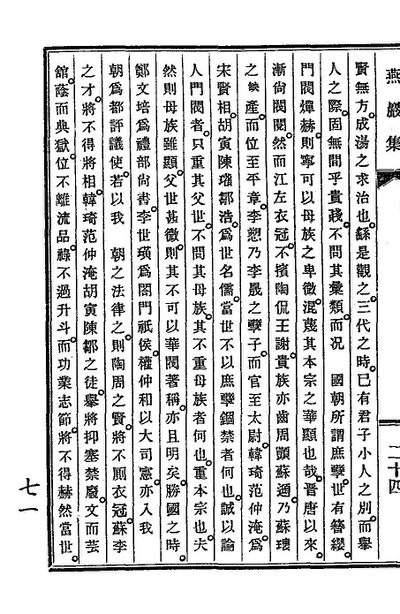 燕巖集
二十四
賢無方。成湯之求治也。繇是觀之。三代之時。已有君子小人之別。而舉
人之際。固無間乎貴賤。不問其彙類。而况　國朝所謂庶孼。世有簪纓。
門閥燀赫。則寧可以母族之卑微。混蔑其本宗之華顯也哉。晉唐以來。
漸尙閥閱。然而江左衣冠。不擯陶侃。王謝貴族。亦齒周顗。蘇逎。乃蘇瓌
之產。而位至平章。李愬。乃李晟之孼子。而官至太尉。韓琦范仲淹。爲
宋賢相。胡寅陳瓘鄒浩。爲世名儒。當世不以庶孼錮禁者何也。誠以論
人門閥者。只重其父世。不問其母族。其不重母族者何也。重本宗也。夫
然則母族雖顯。父世甚微。則其不可以華閥著稱。亦且明矣。勝國之時。
鄭文培爲禮部尙書。李世璜爲閤門祇侯。權仲和以大司憲。亦入我
朝。爲都評議使。若以我　朝之法律之。則陶周之賢。將不厠衣冠。蘇李
之才。將不得將相。韓琦范仲淹胡寅陳鄒之徒。擧將抑塞禁廢。文而芸
館。蔭而典獄。位不離流品。祿不過升斗。而功業志節。將不得赫然當世。
七一